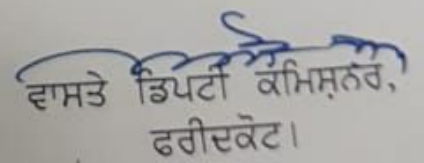 ਵਾਸਤੇ ਡਿਪਟੀ ਕਮਿਸ਼ਨਰ,
ਫਰੀਦਕੋਟ।